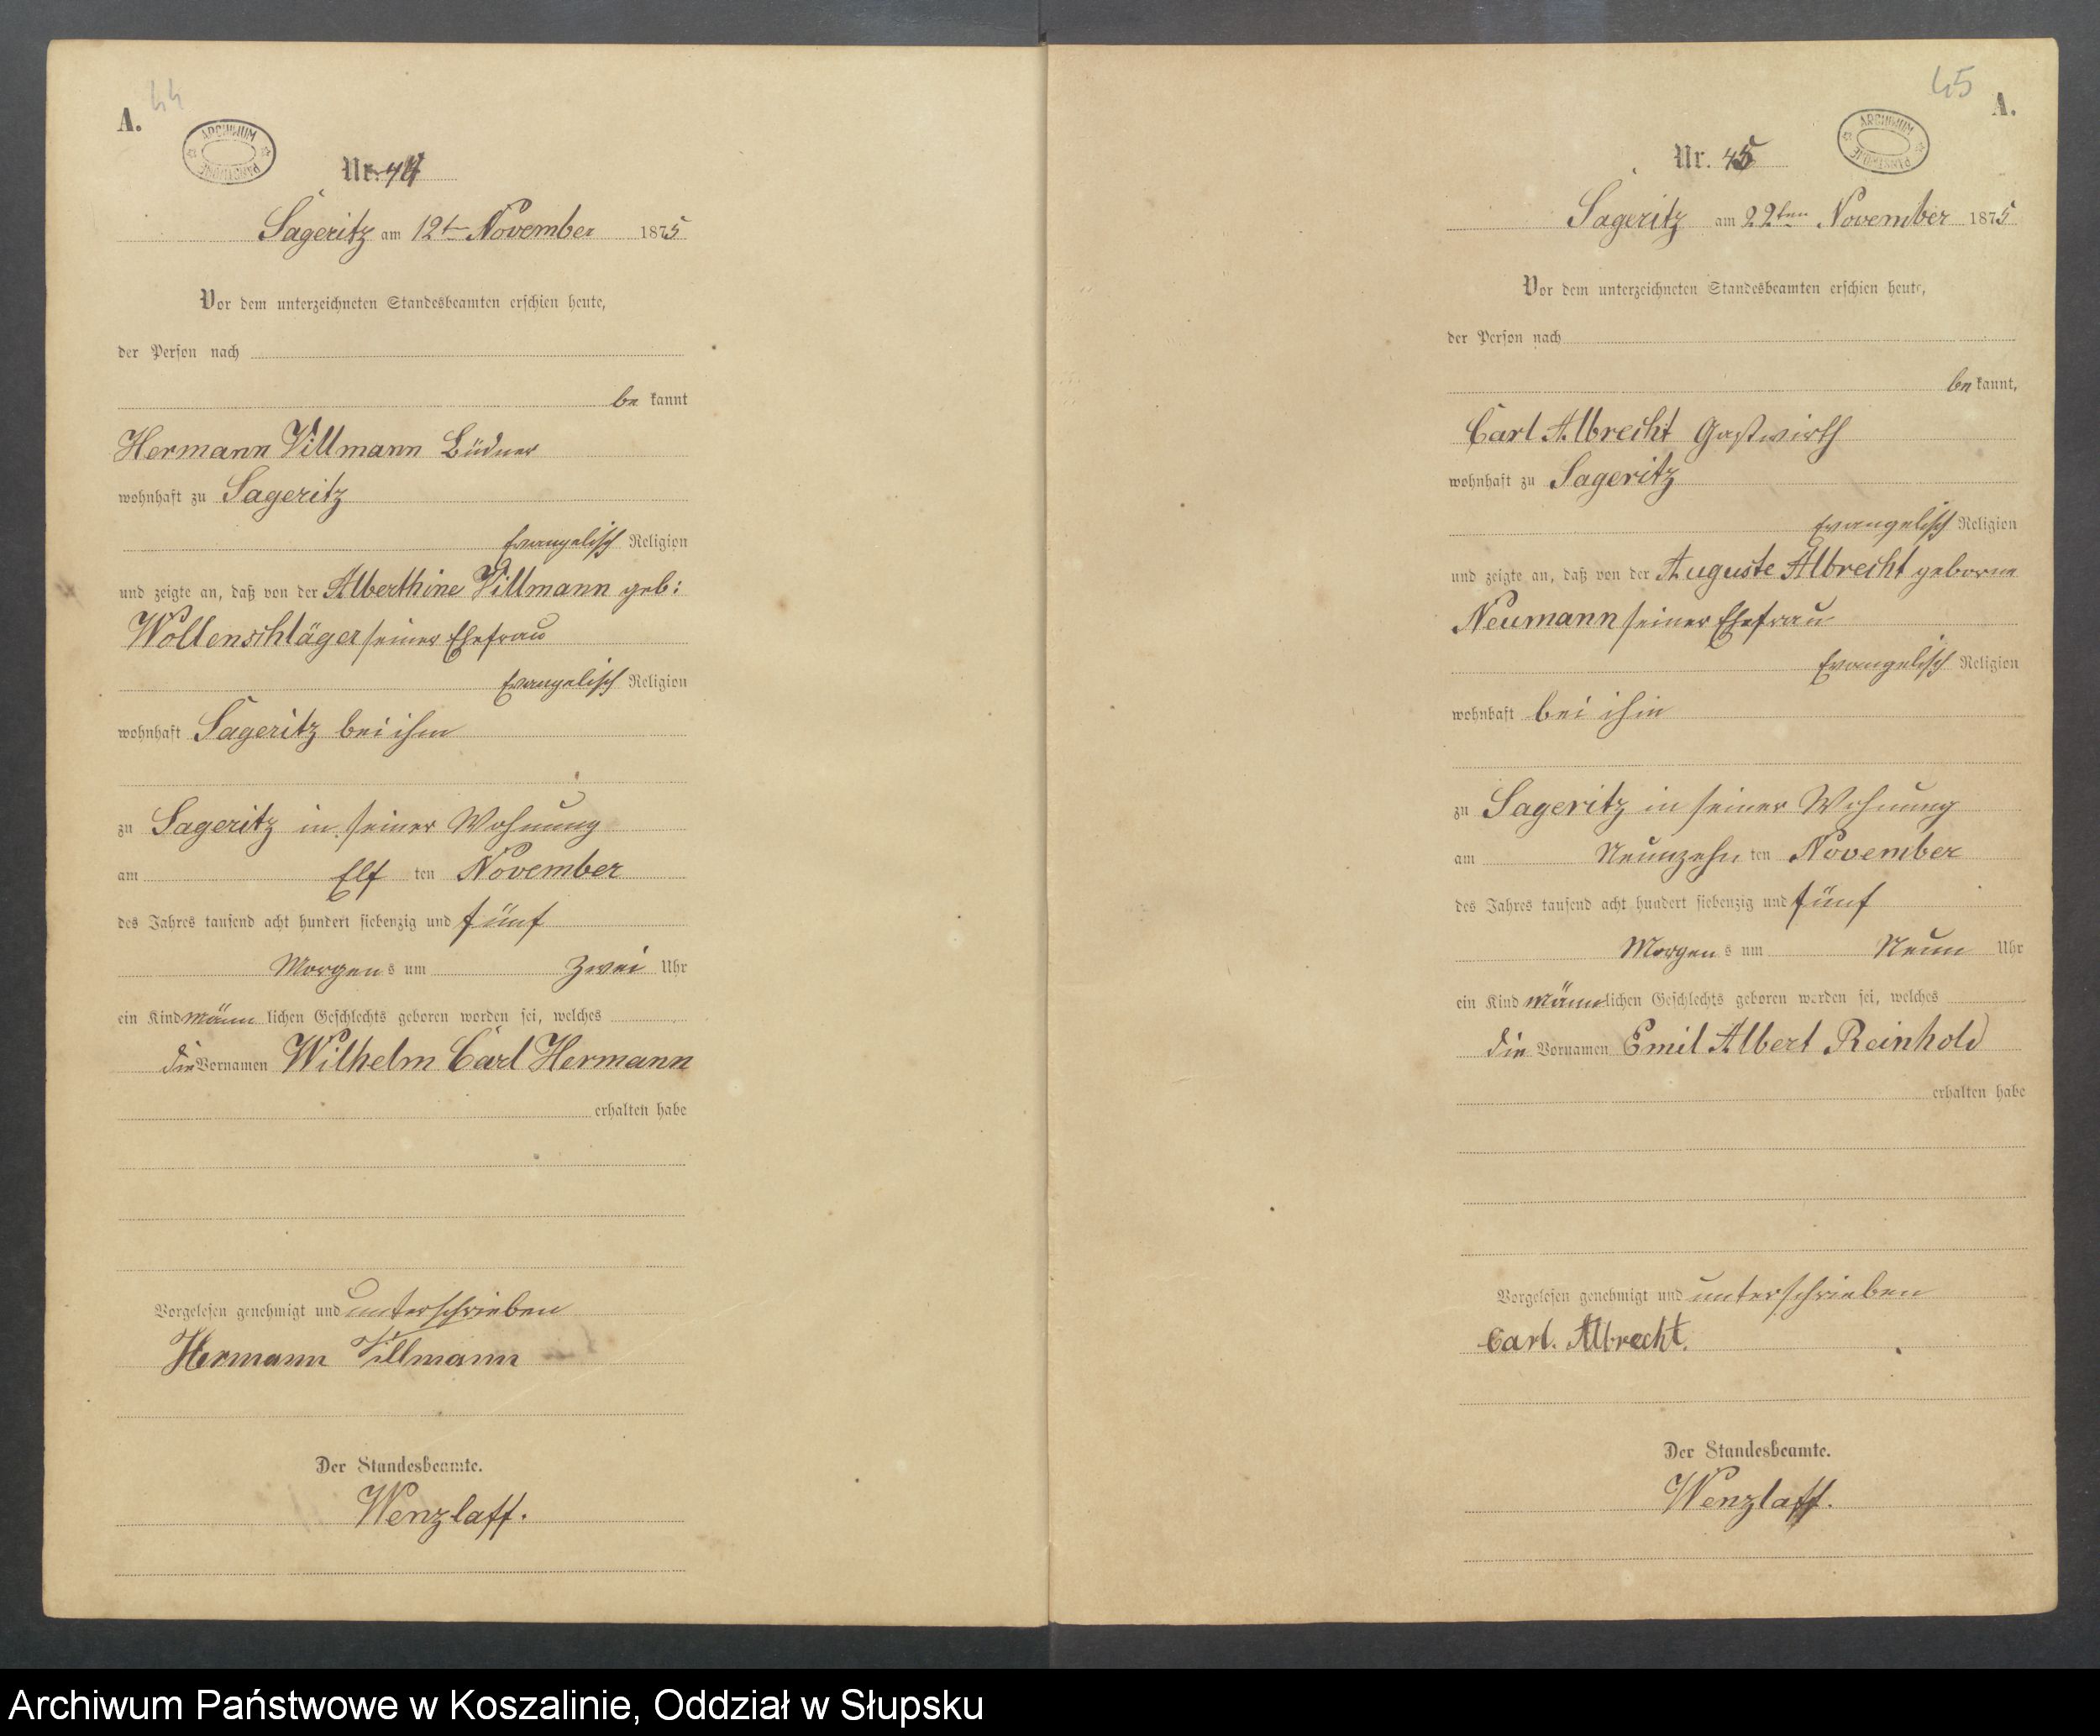 44
A.
ARCHIWUM PAŃSTWOWE
Nr. 44
Sageritz am 12t November 1875
Vor dem unterzeichneten Standesbeamten erschien heute,
der Person nach
be kannt
Hermann Villmann Büdner
wohnhaft zu Sageritz
Evangelisch Religion
und zeigte an, daß von der Alberthine Villmann geb:
Wollenschläger seiner Ehefrau
Evangelisch Religion
wohnhaft Sageritz bei ihm
zu Sageritz in seiner Wohnung
am Elf ten November
des Jahres tausend acht hundert siebenzig und fünf
Morgen s um Zwei Uhr
ein Kind männ lichen Geschlechts geboren worden sei, welches
die Vornamen Wilhelm Carl Hermann
erhalten habe
Vorgelesen genehmigt und unterschrieben
Hermann Villmann
Der Standesbeamte.
Wenzlaff.
45
A.
ARCHIWUM PAŃSTWOWE
Nr. 45
Sageritz am 22ten November 1875
Vor dem unterzeichneten Standesbeamten erschien heute,
der Person nach
be kannt,
Carl Albrecht Gastwirth
wohnhaft zu Sageritz
Evangelisch Religion
und zeigte an, daß von der Auguste Albrecht geborne
Neumann seiner Ehefrau
Evangelisch Religion
wohnhaft bei ihm
zu Sageritz in seiner Wohnung
am Neunzehn ten November
des Jahres tausend acht hundert siebenzig und fünf
Morgen s um Neun Uhr
ein Kind männ lichen Geschlechts geboren worden sei, welches
die Vornamen Emil Albert Reinhold
erhalten habe
Vorgelesen genehmigt und unterschrieben
Carl. Albrecht.
Der Standesbeamte.
Wenzlaff.
Archiwum Państwowe w Koszalinie, Oddział w Słupsku